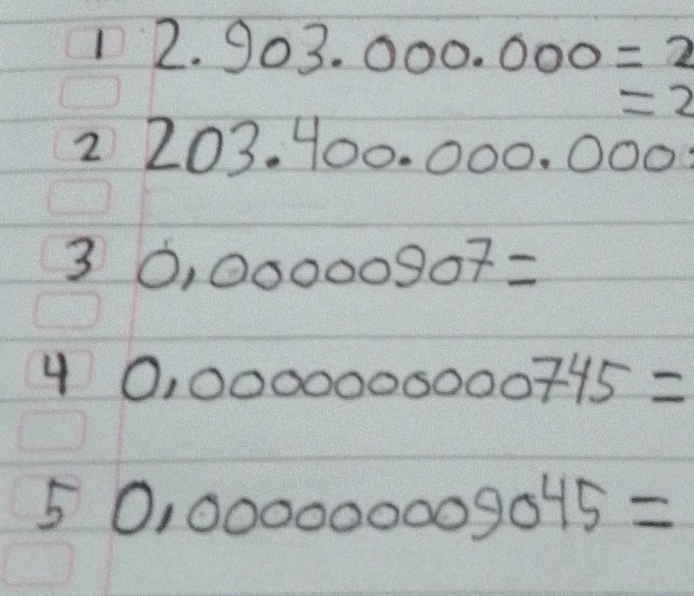 1 2.903.000.000 = 2
= 2
2 203.400.000.000
3 0,00000907 =
4 0,0000000000745 =
5 0,000000009045 =